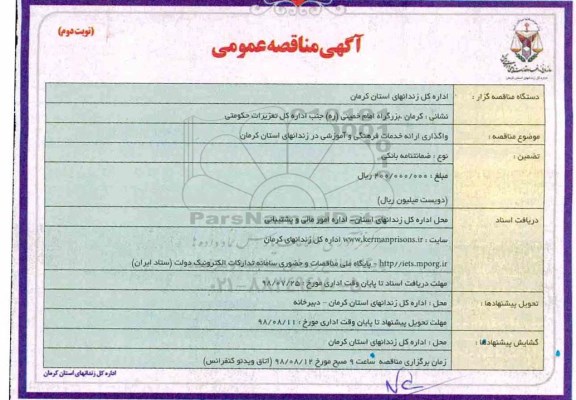 (نوبت دوم)
آگهی مناقصه عمومی
دستگاه مناقصه گزار :
اداره کل زندانهای استان کرمان
نشانی : کرمان ،بزرگراه امام خمینی (ره) جنب اداره کل تعزیرات حکومتی
موضوع مناقصه :
واگذاری ارائه خدمات فرهنگی و آموزشی در زندانهای استان کرمان
تضمین :
نوع : ضمانتنامه بانکی
مبلغ : ۲۰۰/۰۰۰/۰۰۰ ریال
(دویست میلیون ریال)
دریافت اسناد
محل اداره کل زندانهای استان– اداره امور مالی و پشتیبانی
سایت : www.kermanprisons.ir اداره کل زندانهای کرمان
http//iets.mporg.ir پایگاه ملی مناقصات و حضوری سامانه تدارکات الکترونیک دولت (ستاد ایران)
مهلت دریافت اسناد تا پایان وقت اداری مورخ : ۹۸/۰۷/۲۵
تحویل پیشنهادها :
محل : اداره کل زندانهای استان کرمان – دبیرخانه
مهلت تحویل پیشنهاد تا پایان وقت اداری مورخ : ۹۸/۰۸/۱۱
گشایش پیشنهادها :
محل : اداره کل زندانهای استان کرمان
زمان برگزاری مناقصه ساعت ۹ صبح مورخ ۹۸/۰۸/۱۲ (اتاق ویدئو کنفرانس)
اداره کل زندانهای استان کرمان